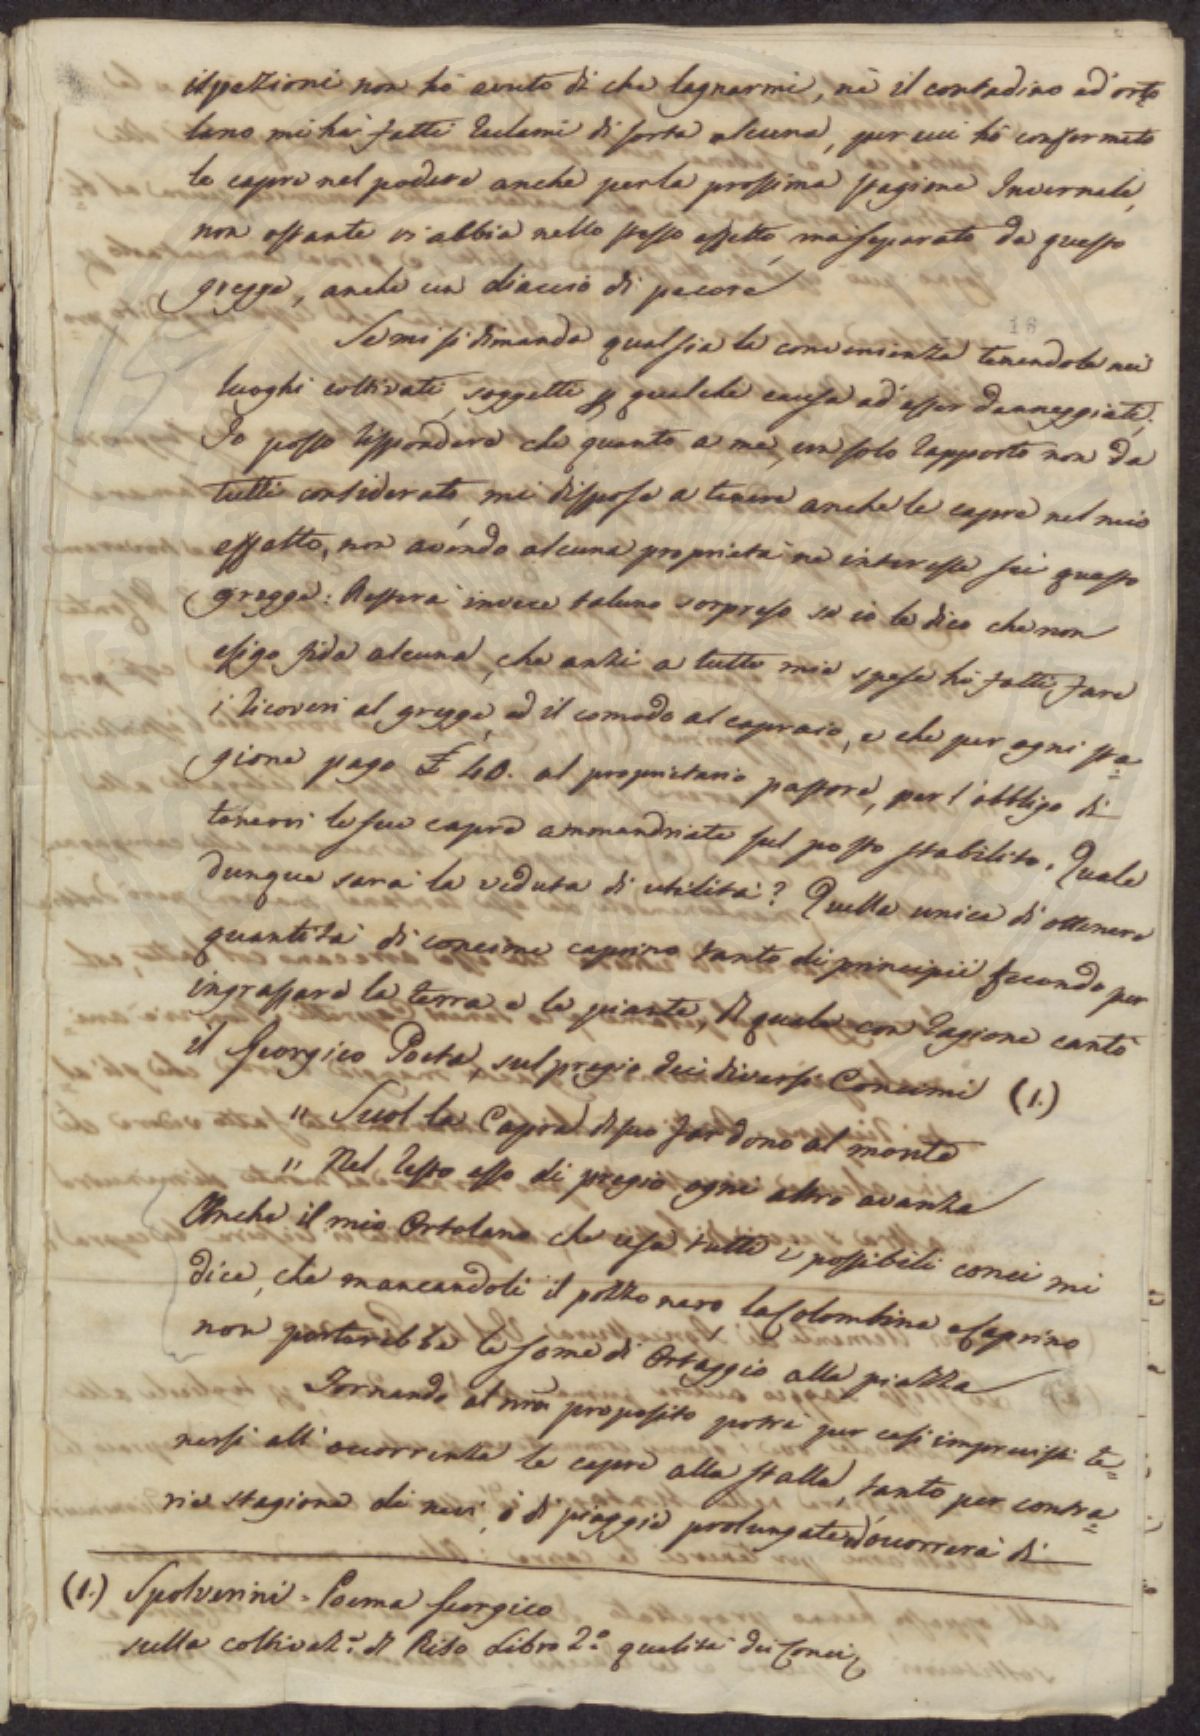 ispezioni non hò avuto di che lagnarmi, nè il contadino ed' orto
lano mi hà fatti reclami di sorta alcuna, per cui hò confermato
le capre nel podere anche per la prossima stagione Invernale,
non ostante vi abbia nello stesso effetto, ma separato da questo
gregge, anche un diaccio di pecore
18
Se mi si dimanda qual sia la convenienza tenendole nei
luoghi coltivati, soggetti p qualche causa ad' esser danneggiati;
Io posso rispondere che quanto a me, un solo rapporto non da
tutti considerato, mi dispose a tenere anche le capre nel mio
effatto, non avendo alcuna proprietà nè interesse sù questo
gregge: Resterà invece taluno sorpreso se io le dico che non
esigo fida alcuna, che anzi a tutte mie spese hò fatti fare
i ricoveri al gregge, ed il comodo al capraio, e che per ogni sta=
gione pago £ 40. al proprietario pastore, per l'obbligo di
tenervi le sue capre ammandriate sul posto stabilito. Quale
dunque sarà la veduta di utilità? Quella unica di ottenere
quantità di concime caprino tanto di principii fecondo per
ingrassare la terra e le piante, di quale con ragione cantò
il Georgico Poeta, sul pregio dei diversi Concimi (1.)
" Suol la Capra di suo far dono al monte
" Nel resto esso di pregio ogni altro avanza
Anche il mio Ortolano che usa tutti i possibili conci mi
dice, che mancandoli il pozzo nero, la Colombina e Caprino
non porterebbe le some di Ortaggio alla piazza
Tornando al nrõ proposito potrà per casi imprevisti te=
nersi all' occorrenza le capre alla stalla, tanto per contra=
ria stagione di nevi, ò di piaggie prolungate ed occorrerà di
(1.) Spolverini = Poema Georgico
sulla coltivaz.e di Riso Libro 2.o qualità dei Conci